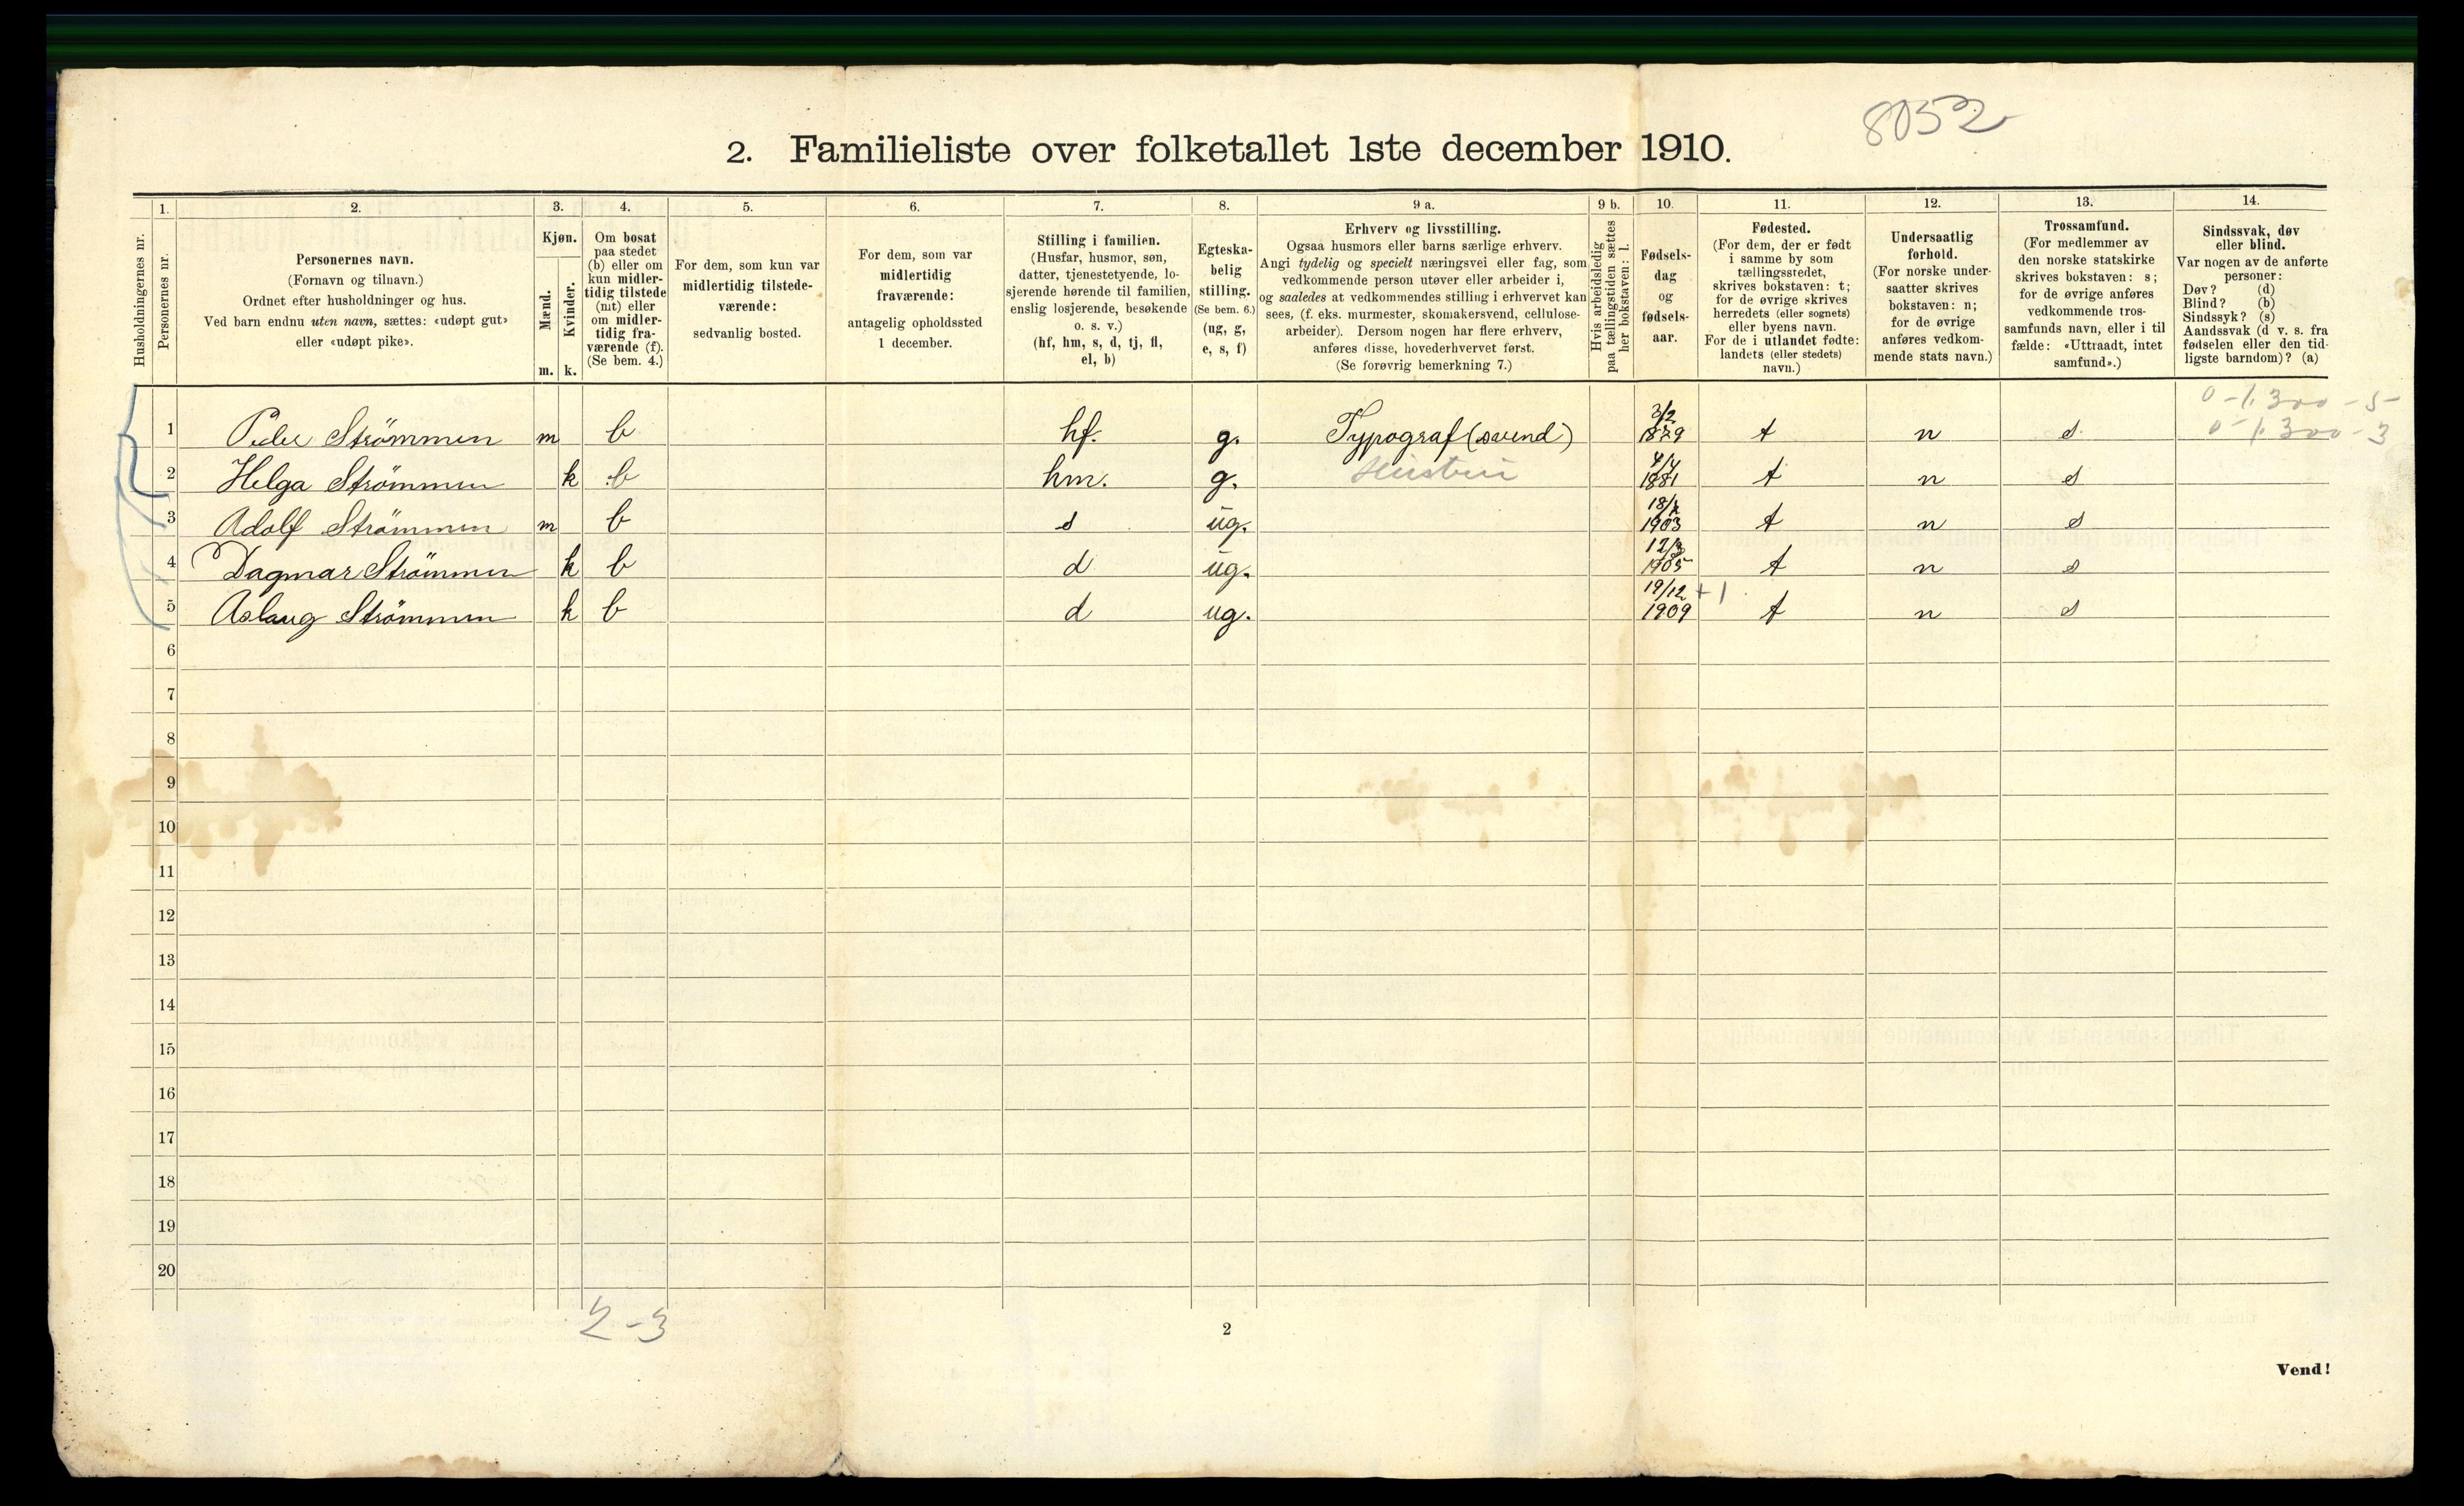 8052
2. Familieliste over folketallet 1ste december 1910.
1. 2. 3. 4. 5. 6. 7. 8. 9 a. 9 b. 10. 11. 12. 13. 14.
Husholdningernes nr.
Personernes nr.
Personernes navn.
(Fornavn og tilnavn.)
Ordnet efter husholdninger og hus.
Ved barn endnu uten navn, sættes: «udøpt gut»
eller «udøpt pike».
Kjøn.
Mænd.
Kvinder.
m. k.
Om bosat
paa stedet
(b) eller om
kun midler-
tidig tilstede
(mt) eller
om midler-
tidig fra-
værende (f).
(Se bem. 4.)
For dem, som kun var
midlertidig tilstede-
værende:
sedvanlig bosted.
For dem, som var
midlertidig
fraværende:
antagelig opholdssted
1 december.
Stilling i familien.
(Husfar, husmor, søn,
datter, tjenestetyende, lo-
sjerende hørende til familien,
enslig losjerende, besøkende
o. s. v.)
(hf, hm, s, d, tj, fl,
el, b)
Egteska-
belig
stilling.
(Se bem. 6.)
(ug, g,
e, s, f)
Erhverv og livsstilling.
Ogsaa husmors eller barns særlige erhverv.
Angi tydelig og specielt næringsvei eller fag, som
vedkommende person utøver eller arbeider i,
og saaledes at vedkommendes stilling i erhvervet kan
sees, (f. eks. murmester, skomakersvend, cellulose-
arbeider). Dersom nogen har flere erhverv,
anføres disse, hovederhvervet først.
(Se forøvrig bemerkning 7.)
Hvis arbeidsledig
paa tællingstiden sættes
her bokstaven: l.
Fødsels-
dag
og
fødsels-
aar.
Fødested.
(For dem, der er født
i samme by som
tællingsstedet,
skrives bokstaven: t;
for de øvrige skrives
herredets (eller sognets)
eller byens navn.
For de i utlandet fødte:
landets (eller stedets)
navn.)
Undersaatlig
forhold.
(For norske under-
saatter skrives
bokstaven: n;
for de øvrige
anføres vedkom-
mende stats navn.)
Trossamfund.
(For medlemmer av
den norske statskirke
skrives bokstaven: s;
for de øvrige anføres
vedkommende tros-
samfunds navn, eller i til-
fælde: «Uttraadt, intet
samfund».)
Sindssvak, døv
eller blind.
Var nogen av de anførte
personer:
Døv? (d)
Blind? (b)
Sindssyk? (s)
Aandssvak (d v. s. fra
fødselen eller den tid-
ligste barndom)? (a)
0-1.300-5-
0-1.300-3
1 Peder Strömmen m b hf. g. Typograf (svend) 3/2 1879 t n s
2 Helga Strömmen k b hm. g. Hustru 4/4 1881 t n s
3 Adolf Strömmen m b s ug. 1903 t n s
4 Dagmar Strömmen k b d ug. 12/3 1905 t n s
5 Aslaug Strömmen k b d ug. 19/12 1909 +1 t n s
6
7
8
9
10
11
12
13
14
15
16
17
18
19
20
2-3
2
Vend!